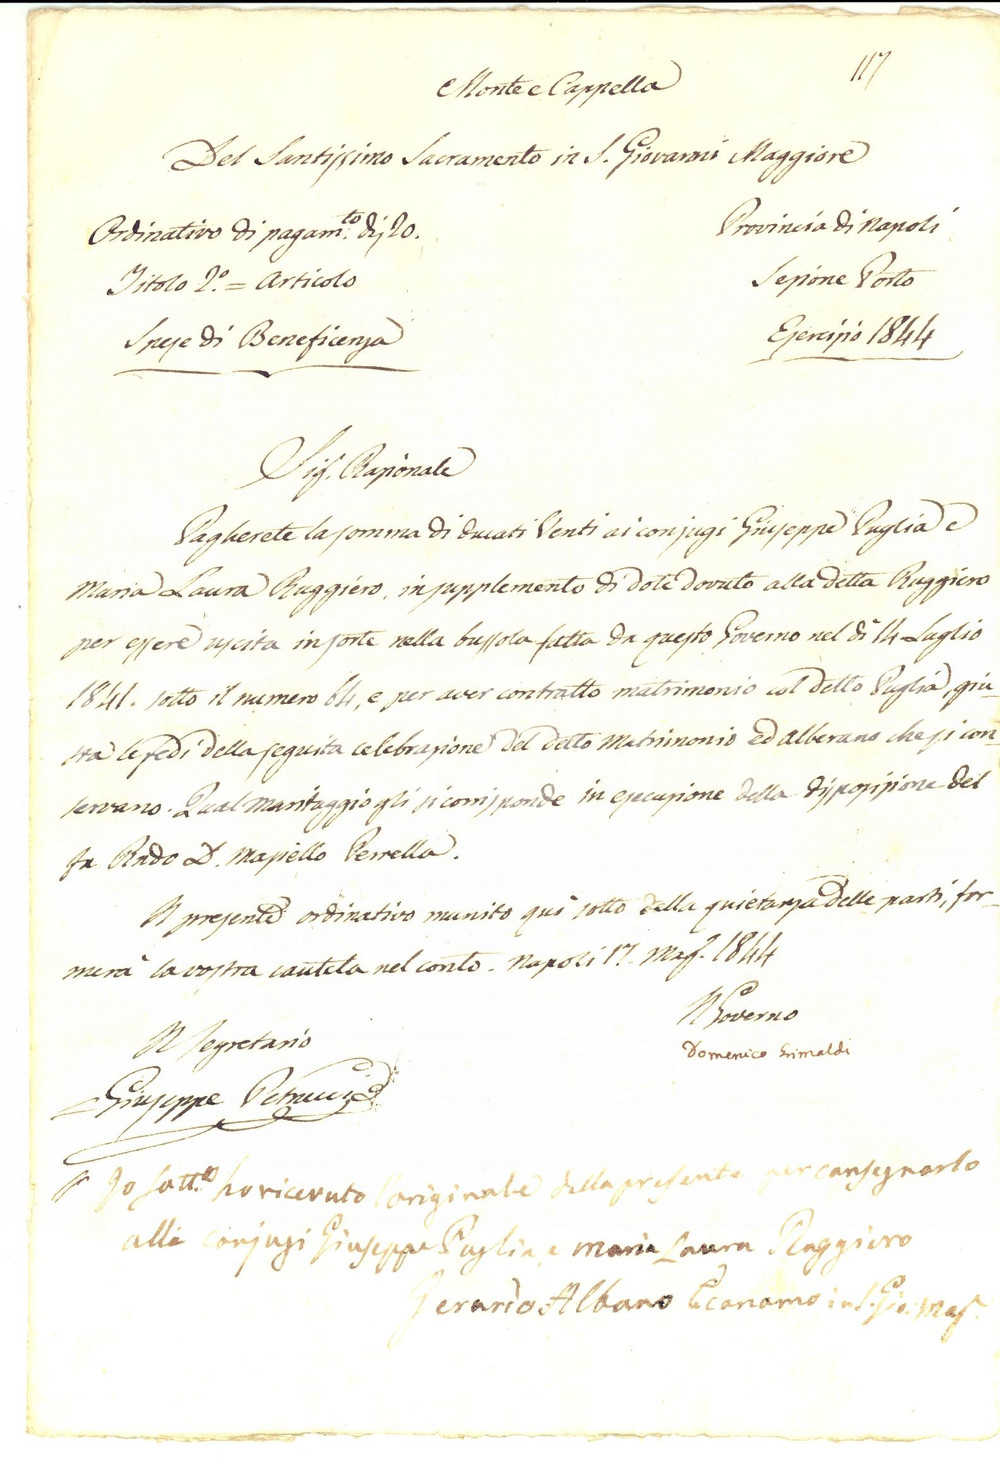 117
Monte e Cappella
Del Santissimo Sacramento in S. Giovanni Maggiore
Ordinativo di pagam.to di 20.
Provincia di Napoli
Titolo 2.o = Articolo
Sezione Porto
Spese di Beneficenza
Esercizio 1844
Sig. Razionale
Pagherete la somma di ducati Venti ai conjugi Giuseppe Puglia e
Maria Laura Ruggiero, in supplemento di dote dovuto alla detta Ruggiero
per essere uscita in sorte nella bussola fatta da questo Governo nel dì 14 Luglio
1841. sotto il numero 64, e per aver contratto matrimonio col detto Puglia, giu-
sta le fedi della seguita celebrazione del detto Matrimonio ed Alberano che si con-
servano. Qual maritaggio gli si corrisponde in esecuzione della disposizione del
fu Rndo D. Masiello Perrella.
Il presente ordinativo munito quì sotto della quietanza delle parti, for-
merà la vostra cautela nel conto. Napoli 17. Mag. 1844
Il Governo
Domenico Grimaldi
Il Segretario
Giuseppe Petrucci
Io sott.o ho ricevuto l'originale della presente per consegnarlo
alli conjugi Giuseppe Puglia e Maria Laura Ruggiero
Gerardo Albano Economo in S. Gio. Mag.